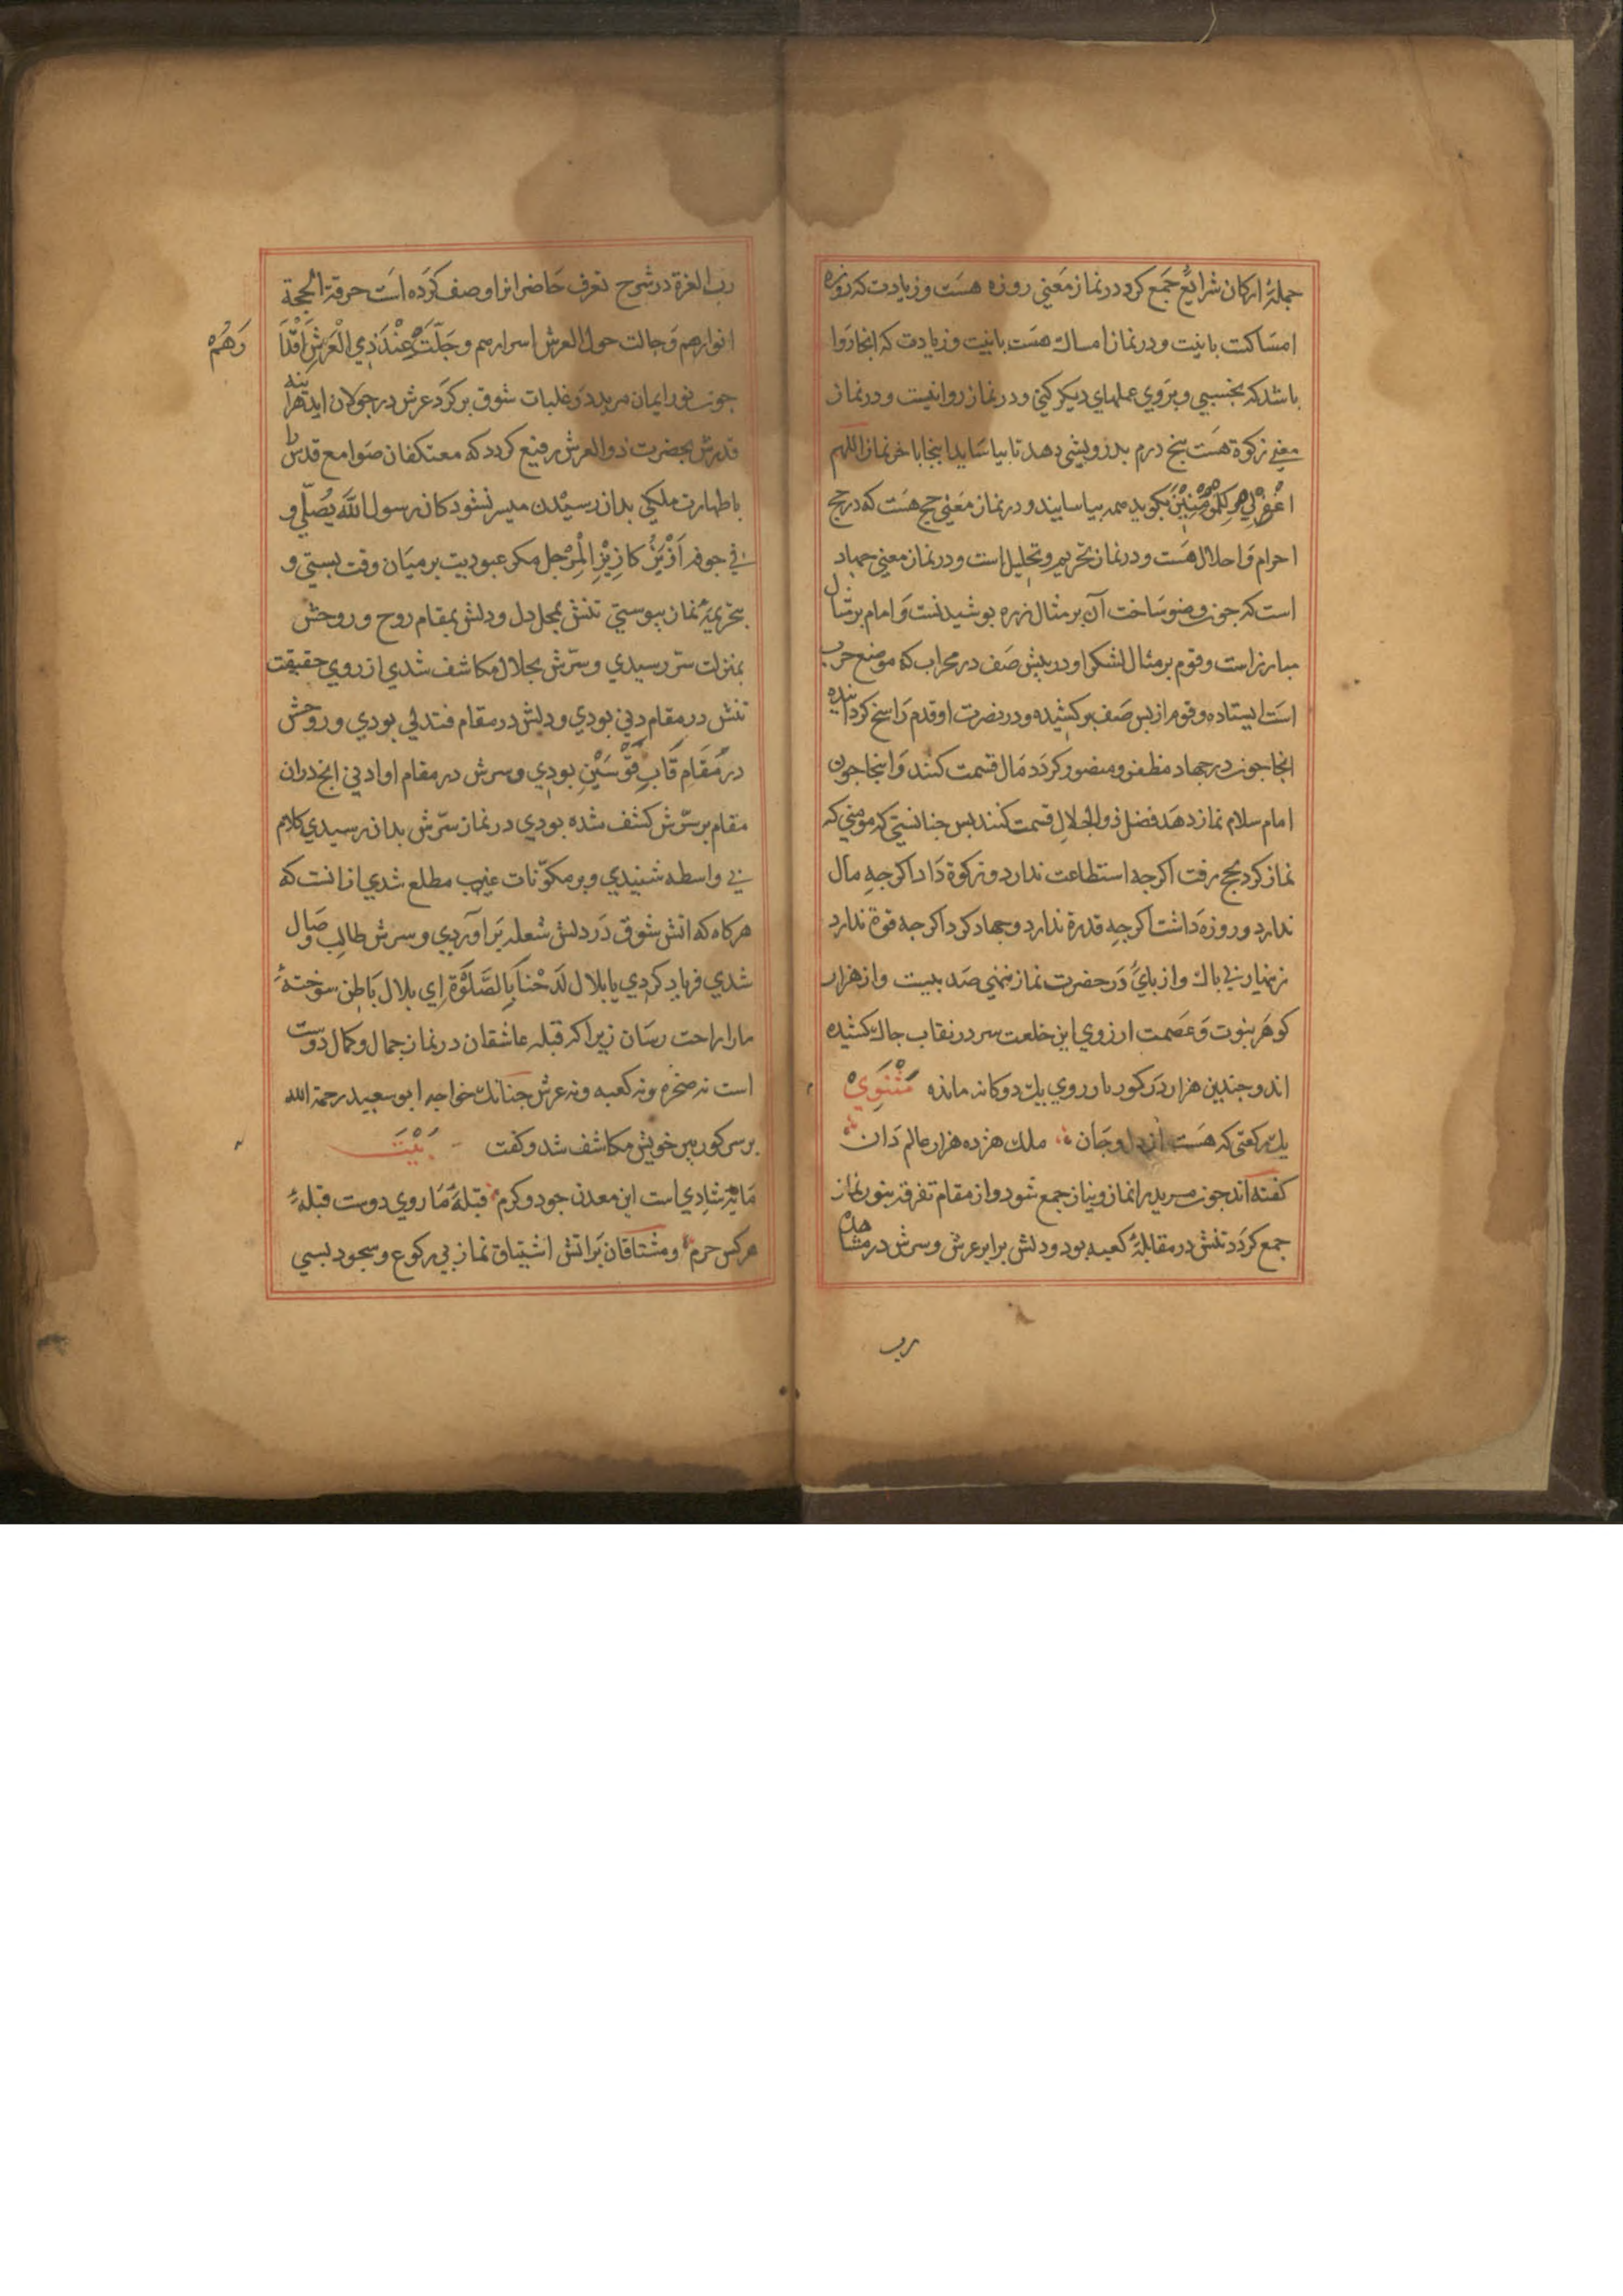 جملهٔ ارکان شرایع جمع کرد در نماز معنی روزه هست و زیادت که روزه
امساکست با نیت و در نماز امساک هست با نیت و زیادت که انجا روا
باشد که بخسبی و بروی عملهای دیکر کنی و در نماز روا نیست و در نماز
معنی زکوة هست پنج درم بدرویشی دهد تا بیاساید اینجا باخر نماز اللهم
اغفر لی و للمؤمنین بکوید همه بیاسایند و در نماز معنی حج هست که در حج
احرام و احلال هست و در نماز تحریم و تحلیل است و در نماز معنی جهاد
است که جون وضو ساخت آن بر مثال زره بوشیدنست و امام بر مثال
مبارز است و قوم بر مثال لشکر او در پیش صف در محراب که موضع حرب
است ایستاده و قوم از بس صف برکشیده و در نصرت او قدم راسخ کردانیده
انجا جون در جهاد مظفر و منصور کردد مال قسمت کنند و اینجا جون
امام سلام نماز دهد فضل ذوالجلال قسمت کنند بس جنانستی که مومنی که
نماز کرد بحج رفت اکرجه استطاعت ندارد و زکوة داد اکرجه مال
ندارد و روزه داشت اکرجه قدرة ندارد و جهاد کرد اکرجه قوة ندارد
زنهار بی باک واز بای در حضرت نماز ننهی صد بیست و از هزار
کوهر نبوت و عصمت ارزوی این خلعت سر در نقاب جاک کشیده
اند و جندین هزار در کور با روی یک دوکانه مانده مثنوی
یک رکعتی که هست از دل و جان ملک هژده هزار عالم دان
کفته اند جون مرید را نماز و نیاز جمع شود و از مقام تفرقه بنور نماز
جمع کردد تنش در مقابلهٔ کعبه بود و دلش برابر عرش و سرش در مشاهده
رب
رب العزة در شرح تعرف حاضرانرا وصف کرده است حرقة الحجة
انوارهم و جالت حول العرش اسرارهم و جلت عند ذی العرش اقدا
وهم
جون نور ایمان مرید در غلبات شوق بر کرد عرش در جولان اید هراینه
قدرش بحضرت ذوالعرش رفیع کردد که معتکفان صوامع قدس را
با طهارت ملکی بدان رسیدن میسر نشود کان رسول الله یصلی و
فی جوفه ازیز کازیز المرجل مکر عبودیت بر میان وقت بستی و
بتحریمهٔ نماز بیوستی تنش بمحل دل و دلش بمقام روح و روحش
بمنزلت سر رسیدی و سرش بجلال مکاشف شدی از روی حقیقت
تنش در مقام دنی بودی و دلش در مقام فتدلی بودی و روحش
در مقام قاب قوسین بودی و سرش در مقام او ادنی انج دران
مقام بر سرش کشف شده بودی در نماز سرش بدان رسیدی کلام
بی واسطه شنیدی و بر مکونات غیب مطلع شدی ازانست که
هرکاه که اتش شوق در دلش شعله بر آوردی و سرش طالب وصال
شدی فریاد کردی یا بلال ارحنا بالصلوة ای بلال باطن سوختهٔ
مارا راحت رسان زیرا که قبله عاشقان در نماز جمال و کمال دوست
است نه صخره و نه کعبه و نه عرش جنانک خواجه ابو سعید رحمة الله
بر سر کور پیر خویش مکاشف شد و کفت بیت
مایه شادی است این معدن جود و کرم قبلهٔ ما روی دوست قبلهٔ
هرکس حرم و مشتاقان بر اتش اشتیاق نماز بی رکوع و سجود بسی